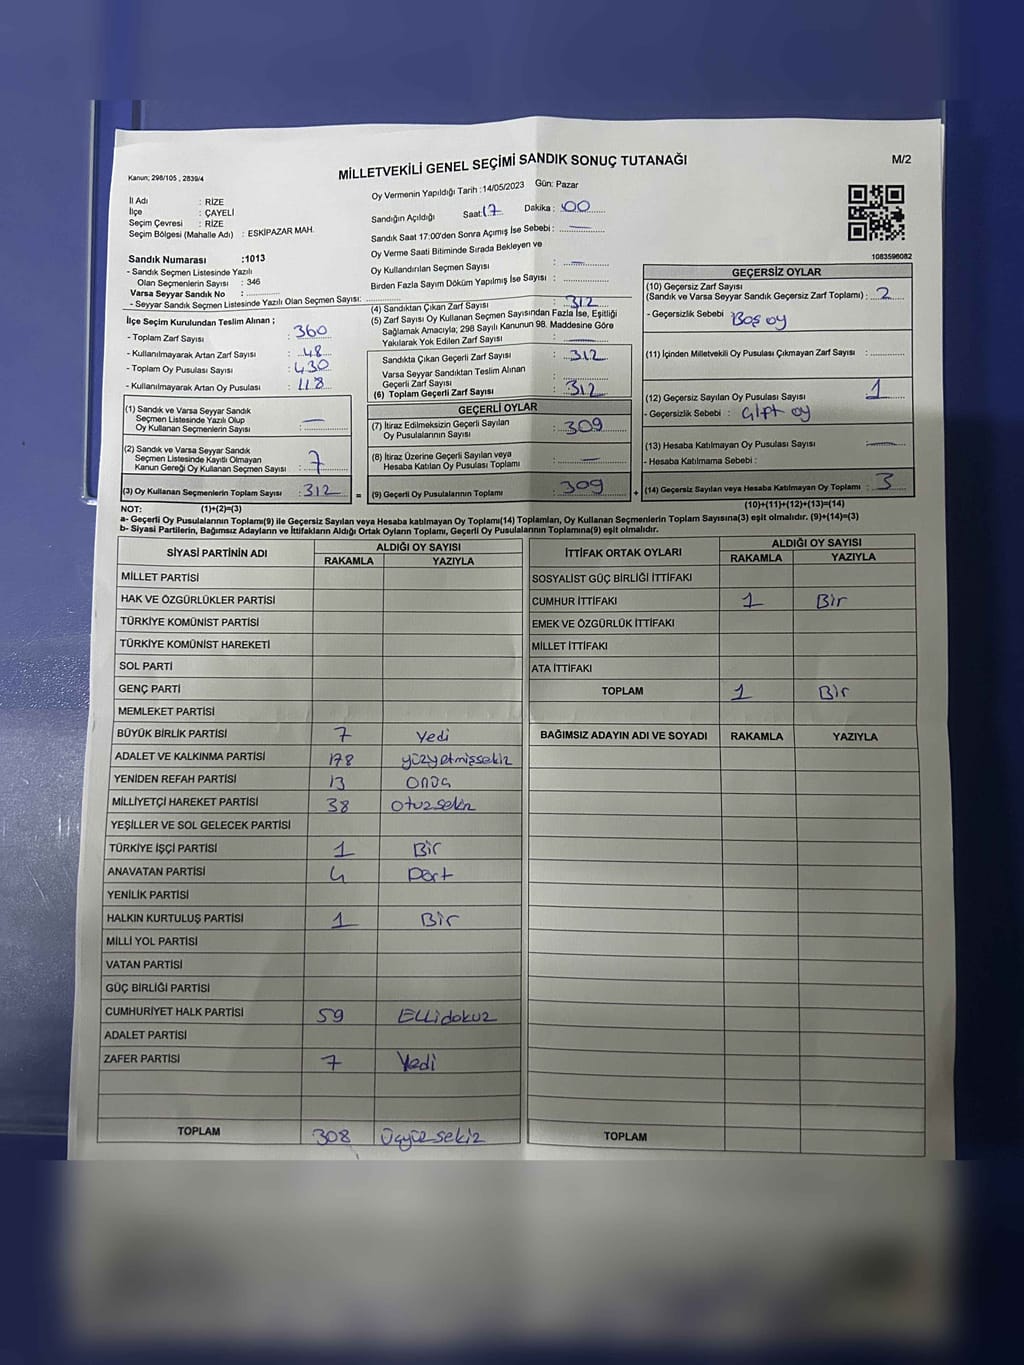 MİLLETVEKİLİ GENEL SEÇİMİ SANDIK SONUÇ TUTANAĞI
M/2
Kanun; 298/105 , 2839/4
İl Adı : RİZE
İlçe : ÇAYELİ
Seçim Çevresi : RİZE
Seçim Bölgesi (Mahalle Adı) : ESKİPAZAR MAH.
Sandık Numarası :1013
- Sandık Seçmen Listesinde Yazılı
Olan Seçmenlerin Sayısı : 346
Varsa Seyyar Sandık No :
- Seyyar Sandık Seçmen Listesinde Yazılı Olan Seçmen Sayısı:
Oy Vermenin Yapıldığı Tarih :14/05/2023 Gün: Pazar
Sandığın Açıldığı Saat:17 Dakika : 00
Sandık Saat 17:00'den Sonra Açımış İse Sebebi : —
Oy Verme Saati Bitiminde Sırada Bekleyen ve
Oy Kullandırılan Seçmen Sayısı : —
Birden Fazla Sayım Döküm Yapılmış İse Sayısı :
1083596082
İlçe Seçim Kurulundan Teslim Alınan ;
- Toplam Zarf Sayısı : 360
- Kullanılmayarak Artan Zarf Sayısı : 48
- Toplam Oy Pusulası Sayısı : 430
- Kullanılmayarak Artan Oy Pusulası : 118
(1) Sandık ve Varsa Seyyar Sandık
Seçmen Listesinde Yazılı Olup
Oy Kullanan Seçmenlerin Sayısı : —
(2) Sandık ve Varsa Seyyar Sandık
Seçmen Listesinde Kayıtlı Olmayan
Kanun Gereği Oy Kullanan Seçmen Sayısı : 7
(3) Oy Kullanan Seçmenlerin Toplam Sayısı : 312 =
(1)+(2)=(3)
(4) Sandıktan Çıkan Zarf Sayısı : 312
(5) Zarf Sayısı Oy Kullanan Seçmen Sayısından Fazla İse, Eşitliği
Sağlamak Amacıyla; 298 Sayılı Kanunun 98. Maddesine Göre
Yakılarak Yok Edilen Zarf Sayısı : —
Sandıkta Çıkan Geçerli Zarf Sayısı : 312
Varsa Seyyar Sandıktan Teslim Alınan
Geçerli Zarf Sayısı :
(6) Toplam Geçerli Zarf Sayısı : 312
GEÇERLİ OYLAR
(7) İtiraz Edilmeksizin Geçerli Sayılan
Oy Pusulalarının Sayısı : 309
(8) İtiraz Üzerine Geçerli Sayılan veya
Hesaba Katılan Oy Pusulası Toplamı : —
(9) Geçerli Oy Pusulalarının Toplamı : 309 +
GEÇERSİZ OYLAR
(10) Geçersiz Zarf Sayısı
(Sandık ve Varsa Seyyar Sandık Geçersiz Zarf Toplamı) : 2
- Geçersizlik Sebebi : Boş oy
(11) İçinden Milletvekili Oy Pusulası Çıkmayan Zarf Sayısı :
(12) Geçersiz Sayılan Oy Pusulası Sayısı : 1
- Geçersizlik Sebebi : Çift oy
(13) Hesaba Katılmayan Oy Pusulası Sayısı : —
- Hesaba Katılmama Sebebi :
(14) Geçersiz Sayılan veya Hesaba Katılmayan Oy Toplamı : 3
(10)+(11)+(12)+(13)=(14)
NOT:
a- Geçerli Oy Pusulalarının Toplamı(9) ile Geçersiz Sayılan veya Hesaba katılmayan Oy Toplamı(14) Toplamları, Oy Kullanan Seçmenlerin Toplam Sayısına(3) eşit olmalıdır. (9)+(14)=(3)
b- Siyasi Partilerin, Bağımsız Adayların ve İttifakların Aldığı Ortak Oyların Toplamı, Geçerli Oy Pusulalarının Toplamına(9) eşit olmalıdır.
SİYASİ PARTİNİN ADI ALDIĞI OY SAYISI
RAKAMLA YAZIYLA
MİLLET PARTİSİ
HAK VE ÖZGÜRLÜKLER PARTİSİ
TÜRKİYE KOMÜNİST PARTİSİ
TÜRKİYE KOMÜNİST HAREKETİ
SOL PARTİ
GENÇ PARTİ
MEMLEKET PARTİSİ
BÜYÜK BİRLİK PARTİSİ 7 Yedi
ADALET VE KALKINMA PARTİSİ 178 yüzyetmişsekiz
YENİDEN REFAH PARTİSİ 13 Onüç
MİLLİYETÇİ HAREKET PARTİSİ 38 otuzsekiz
YEŞİLLER VE SOL GELECEK PARTİSİ
TÜRKİYE İŞÇİ PARTİSİ 1 Bir
ANAVATAN PARTİSİ 4 Dört
YENİLİK PARTİSİ
HALKIN KURTULUŞ PARTİSİ 1 Bir
MİLLİ YOL PARTİSİ
VATAN PARTİSİ
GÜÇ BİRLİĞİ PARTİSİ
CUMHURİYET HALK PARTİSİ 59 Ellidokuz
ADALET PARTİSİ
ZAFER PARTİSİ 7 Yedi
TOPLAM 308 Üçyüzsekiz
İTTİFAK ORTAK OYLARI ALDIĞI OY SAYISI
RAKAMLA YAZIYLA
SOSYALİST GÜÇ BİRLİĞİ İTTİFAKI
CUMHUR İTTİFAKI 1 Bir
EMEK VE ÖZGÜRLÜK İTTİFAKI
MİLLET İTTİFAKI
ATA İTTİFAKI
TOPLAM 1 Bir
BAĞIMSIZ ADAYIN ADI VE SOYADI RAKAMLA YAZIYLA
TOPLAM